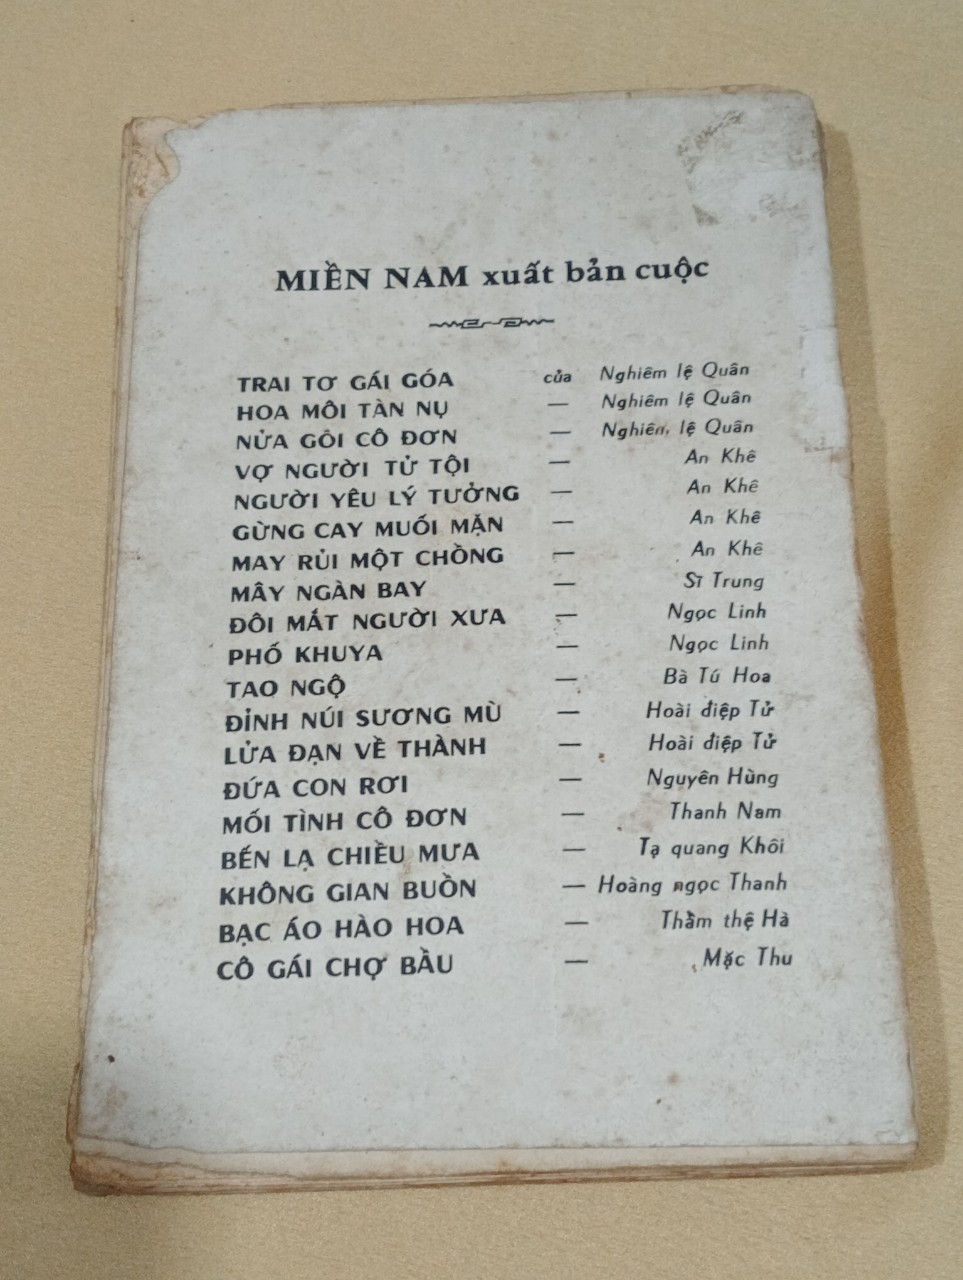 MIỀN NAM xuất bản cuộc
TRAI TƠ GÁI GÓA của Nghiêm lệ Quân
HOA MÔI TÀN NỤ — Nghiêm lệ Quân
NỬA GỐI CÔ ĐƠN — Nghiêm lệ Quân
VỢ NGƯỜI TỬ TỘI — An Khê
NGƯỜI YÊU LÝ TƯỞNG — An Khê
GỪNG CAY MUỐI MẶN — An Khê
MAY RỦI MỘT CHỒNG — An Khê
MÂY NGÀN BAY — Sĩ Trung
ĐÔI MẮT NGƯỜI XƯA — Ngọc Linh
PHỐ KHUYA — Ngọc Linh
TAO NGỘ — Bà Tú Hoa
ĐỈNH NÚI SƯƠNG MÙ — Hoài điệp Tử
LỬA ĐẠN VỀ THÀNH — Hoài điệp Tử
ĐỨA CON RƠI — Nguyên Hùng
MỐI TÌNH CÔ ĐƠN — Thanh Nam
BẾN LẠ CHIỀU MƯA — Tạ quang Khôi
KHÔNG GIAN BUỒN — Hoàng ngọc Thanh
BẠC ÁO HÀO HOA — Thẩm thệ Hà
CÔ GÁI CHỢ BẦU — Mặc Thu